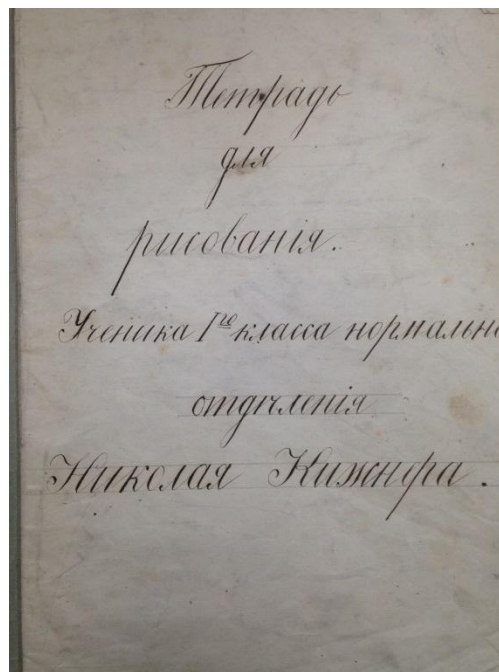 Тетрадь
для
рисованія.
Ученика Iго класса нормальна
отдѣленія
Николая Кижнера.